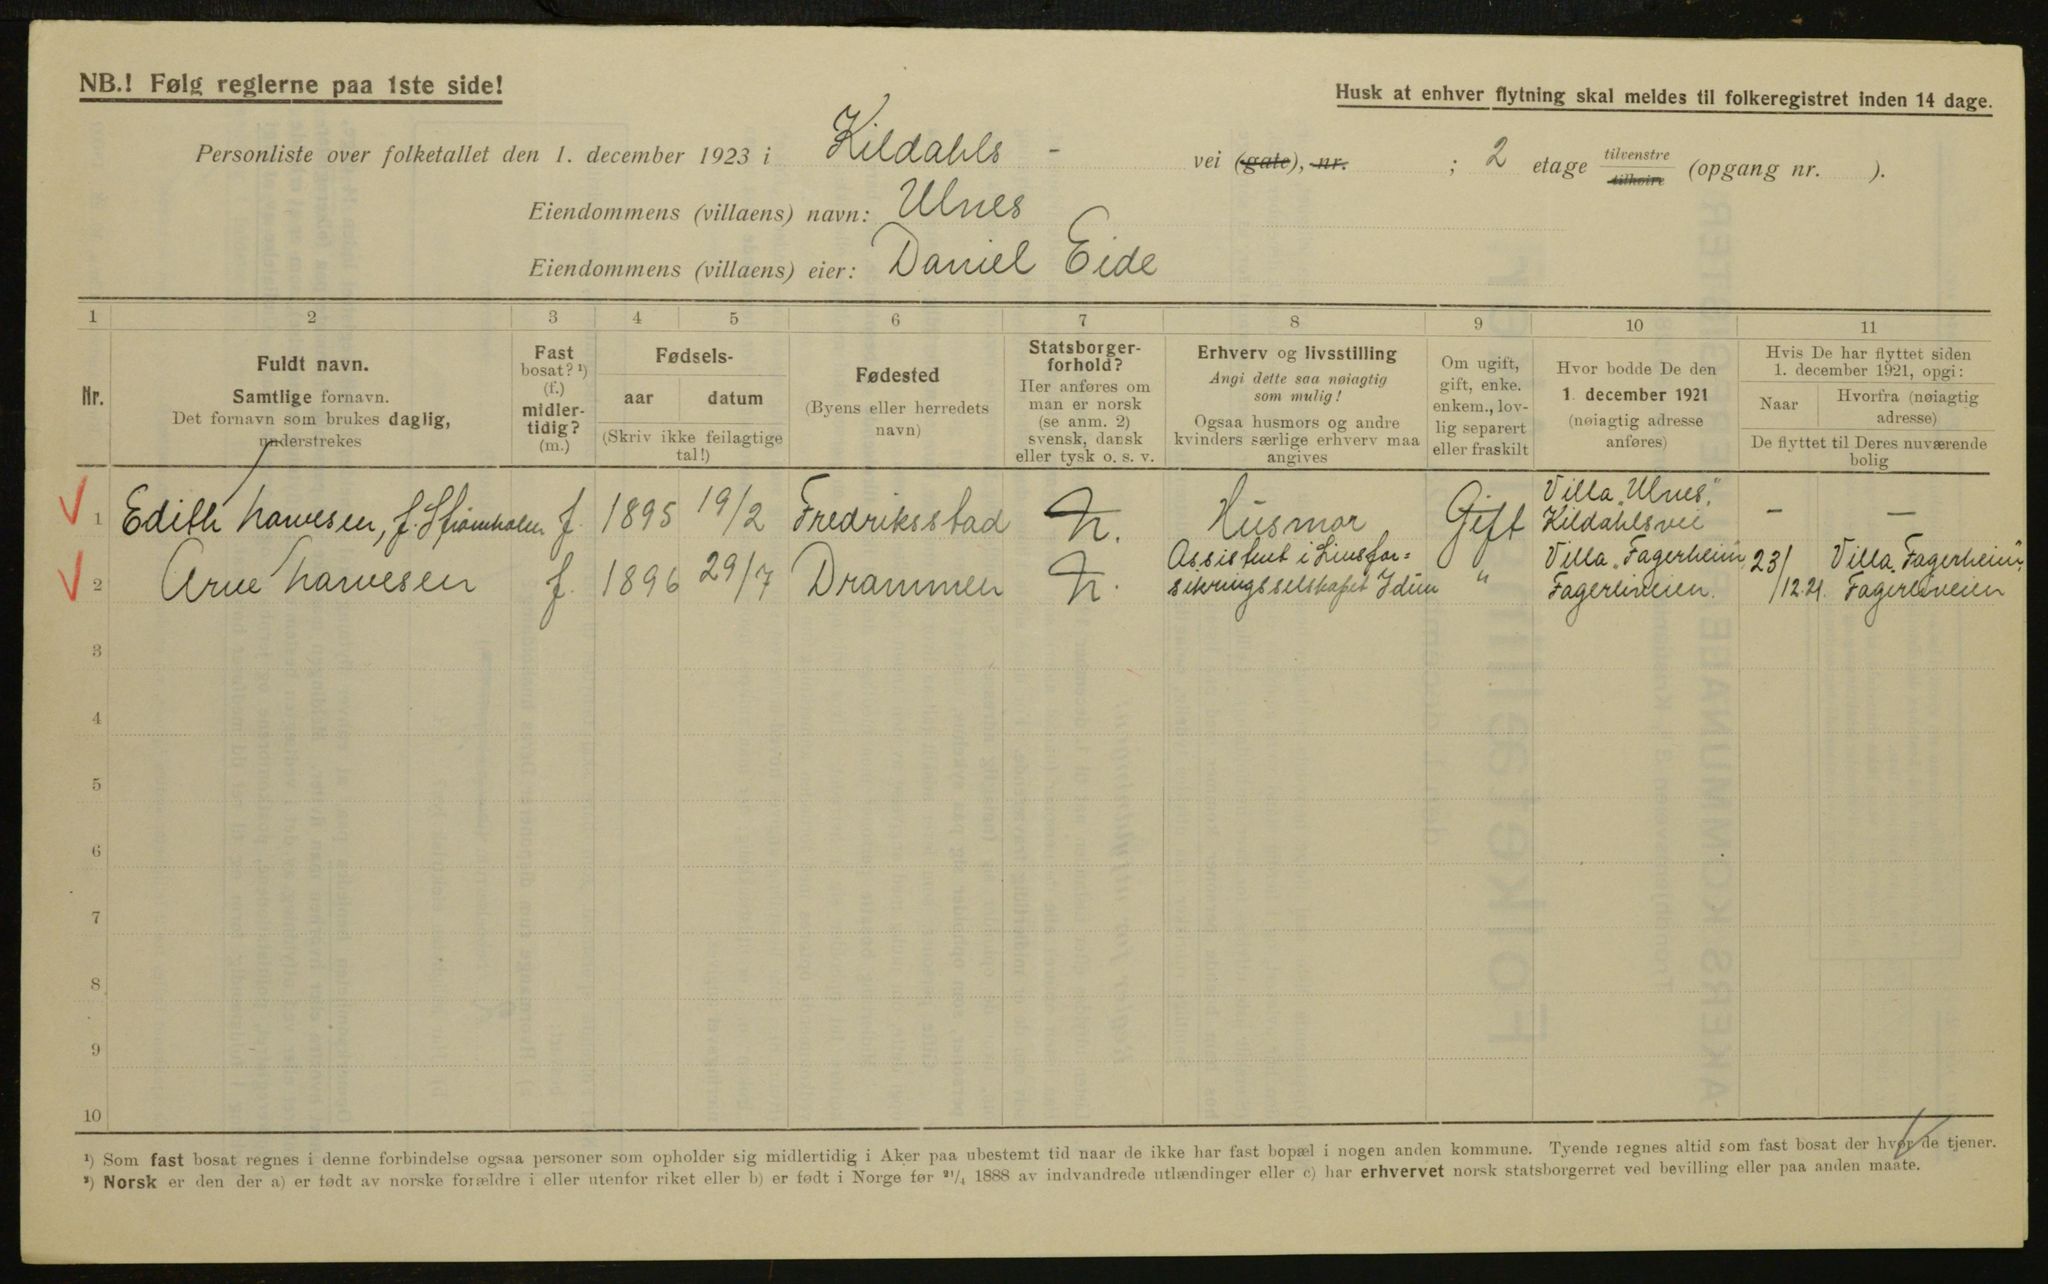 NB.! Følg reglerne paa 1ste side!
Husk at enhver flytning skal meldes til folkeregistret inden 14 dage.
Personliste over folketallet den 1. december 1923 i Kildahls - vei (gate), nr. ; 2 etage tilvenstre tilhøire (opgang nr. ).
Eiendommens (villaens) navn: Ulnes
Eiendommens (villaens) eier: Daniel Eide
1 2 3 4 5 6 7 8 9 10 11
Nr.
Fuldt navn.
Samtlige fornavn.
Det fornavn som brukes daglig,
understrekes
Fast
bosat? ¹)
(f.)
midler-
tidig?
(m.)
Fødsels-
aar datum
(Skriv ikke feilagtige
tal!)
Fødested
(Byens eller herredets
navn)
Statsborger-
forhold?
Her anføres om
man er norsk
(se anm. 2)
svensk, dansk
eller tysk o. s. v.
Erhverv og livsstilling
Angi dette saa nøiagtig
som mulig!
Ogsaa husmors og andre
kvinders særlige erhverv maa
angives
Om ugift,
gift, enke.
enkem., lov-
lig separert
eller fraskilt
Hvor bodde De den
1. december 1921
(nøiagtig adresse
anføres)
Hvis De har flyttet siden
1. december 1921, opgi:
Naar
Hvorfra (nøiagtig
adresse)
De flyttet til Deres nuværende
bolig
1 Edith Narvesen, f. Strømholm f. 1895 19/2 Fredriksstad N. Husmor Gift Villa „Ulnes", Kildahlsvei — —
2 Arne Narvesen f. 1896 29/7 Drammen N. Assistent i Livsfor= sikringsselskapet Idun " Villa „Fagerheim" Fagerliveien. 23/12.21. Villa „Fagerheim", Fagerliveien
3
4
5
6
7
8
9
10
¹) Som fast bosat regnes i denne forbindelse ogsaa personer som opholder sig midlertidig i Aker paa ubestemt tid naar de ikke har fast bopæl i nogen anden kommune. Tyende regnes altid som fast bosat der hvor de tjener.
²) Norsk er den der a) er født av norske forældre i eller utenfor riket eller b) er født i Norge før ²¹/₄ 1888 av indvandrede utlændinger eller c) har erhvervet norsk statsborgerret ved bevilling eller paa anden maate.